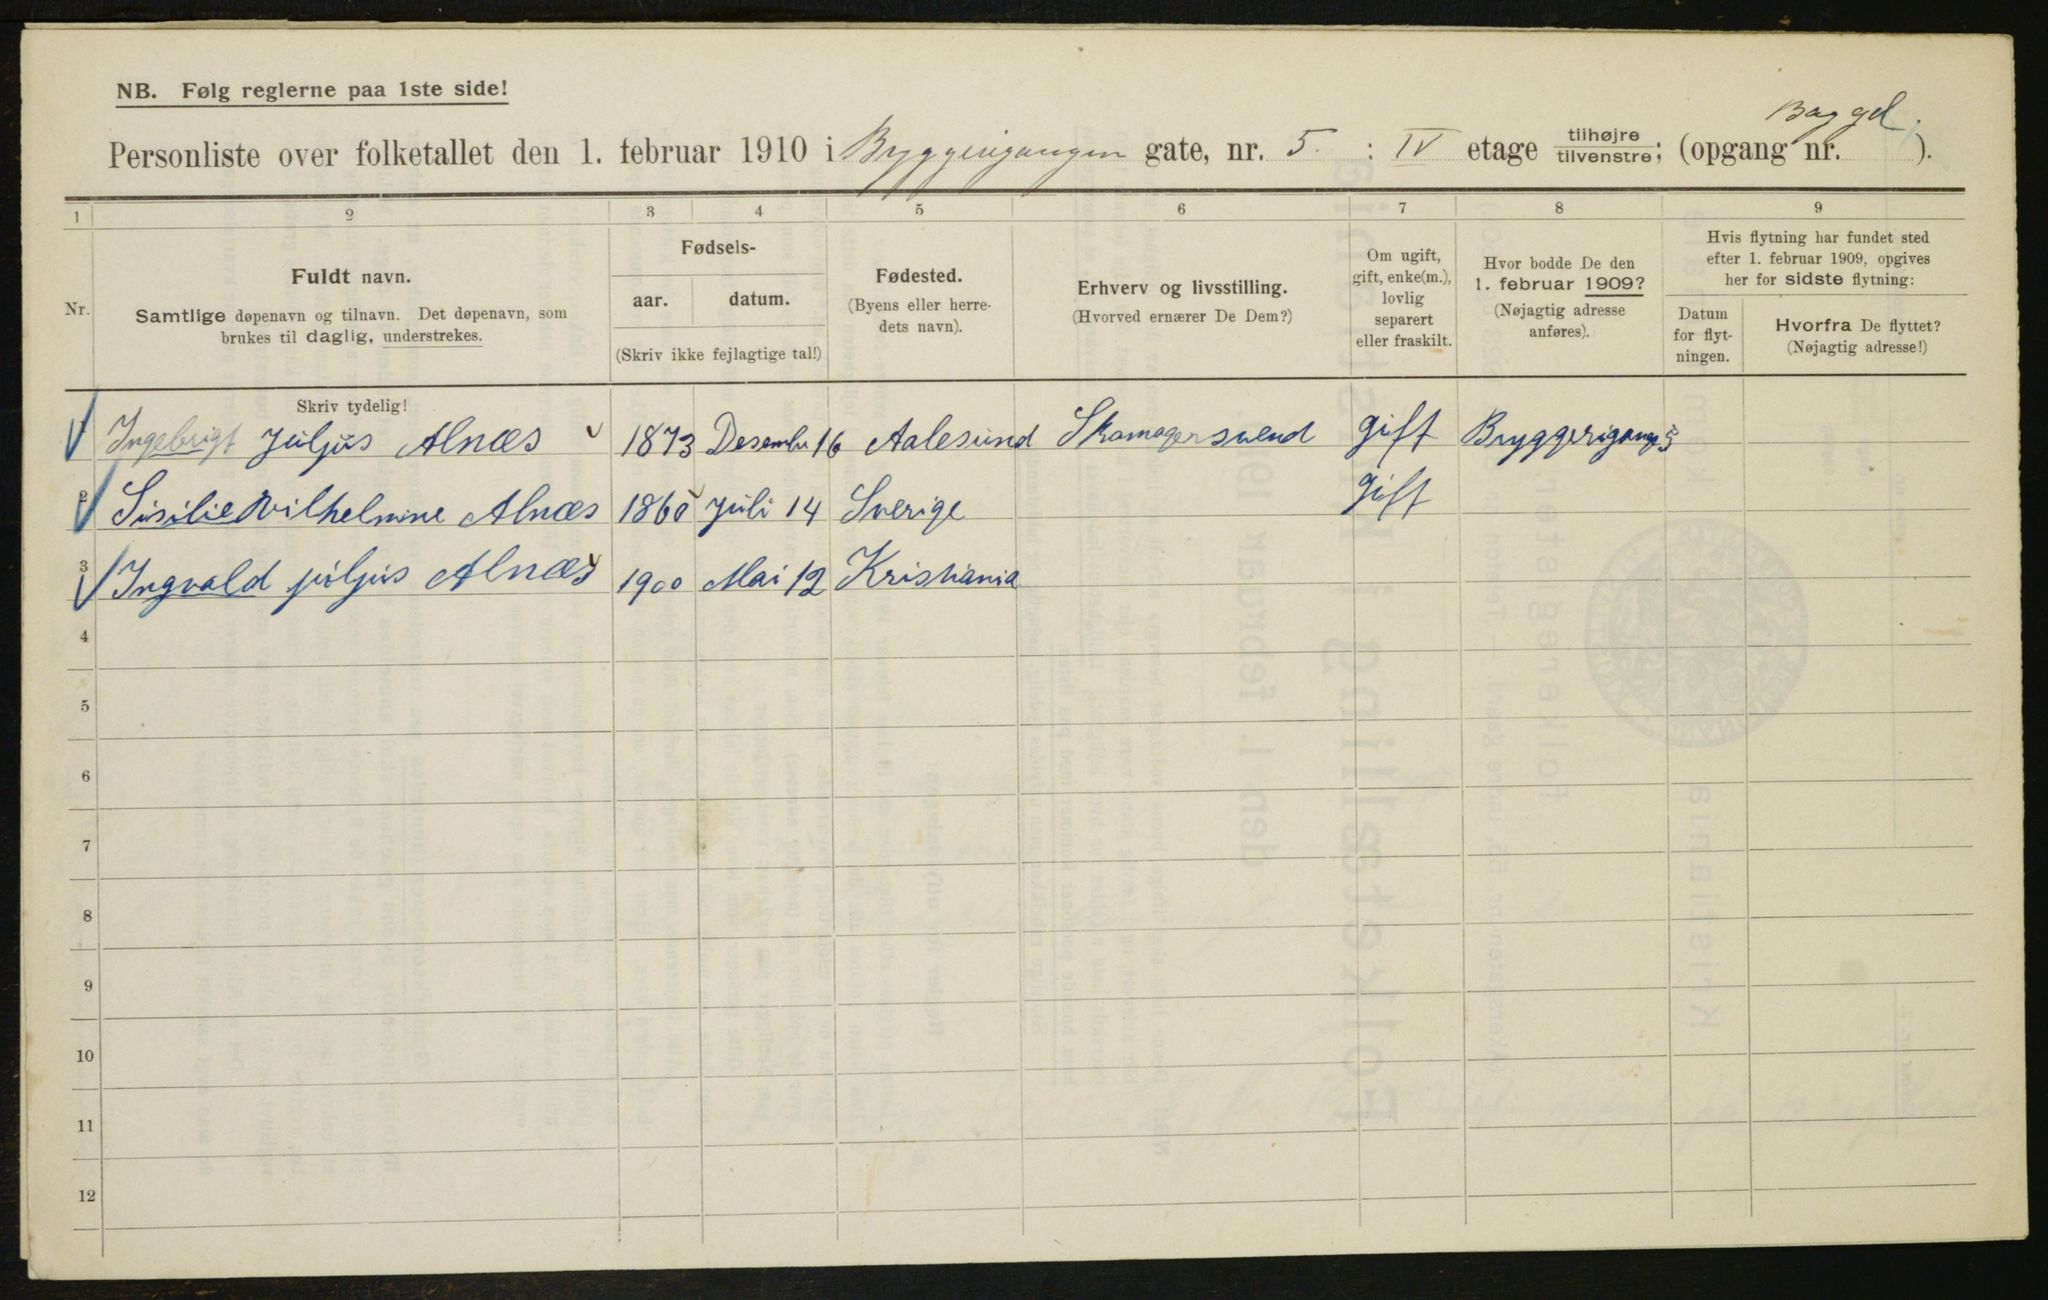 NB. Følg reglerne paa 1ste side!
Bag gd.
Personliste over folketallet den 1. februar 1910 i Bryggerigangen gate, nr. 5. : IV etage tilhøjre tilvenstre; (opgang nr. ).
1 2 3 4 5 6 7 8 9
Nr.
Fuldt navn.
Samtlige døpenavn og tilnavn. Det døpenavn, som
brukes til daglig, understrekes.
Fødsels-
aar. datum.
(Skriv ikke fejlagtige tal!)
Fødested.
(Byens eller herre-
dets navn).
Erhverv og livsstilling.
(Hvorved ernærer De Dem?)
Om ugift,
gift, enke(m.),
lovlig
separert
eller fraskilt.
Hvor bodde De den
1. februar 1909?
(Nøjagtig adresse
anføres).
Hvis flytning har fundet sted
efter 1. februar 1909, opgives
her for sidste flytning:
Datum
for flyt-
ningen.
Hvorfra De flyttet?
(Nøjagtig adresse!)
Skriv tydelig!
Ingebrigt Juljus Alnæs 1873 Desembr 16 Aalesund Skomagersvend gift Bryggerigange 5
2 Sisilie Wilhelmine Alnæs 1860 Juli 14 Sverige gift
3 Ingvald Juljus Alnæs 1900 Mai 12 Kristiania
4
5
6
7
8
9
10
11
12